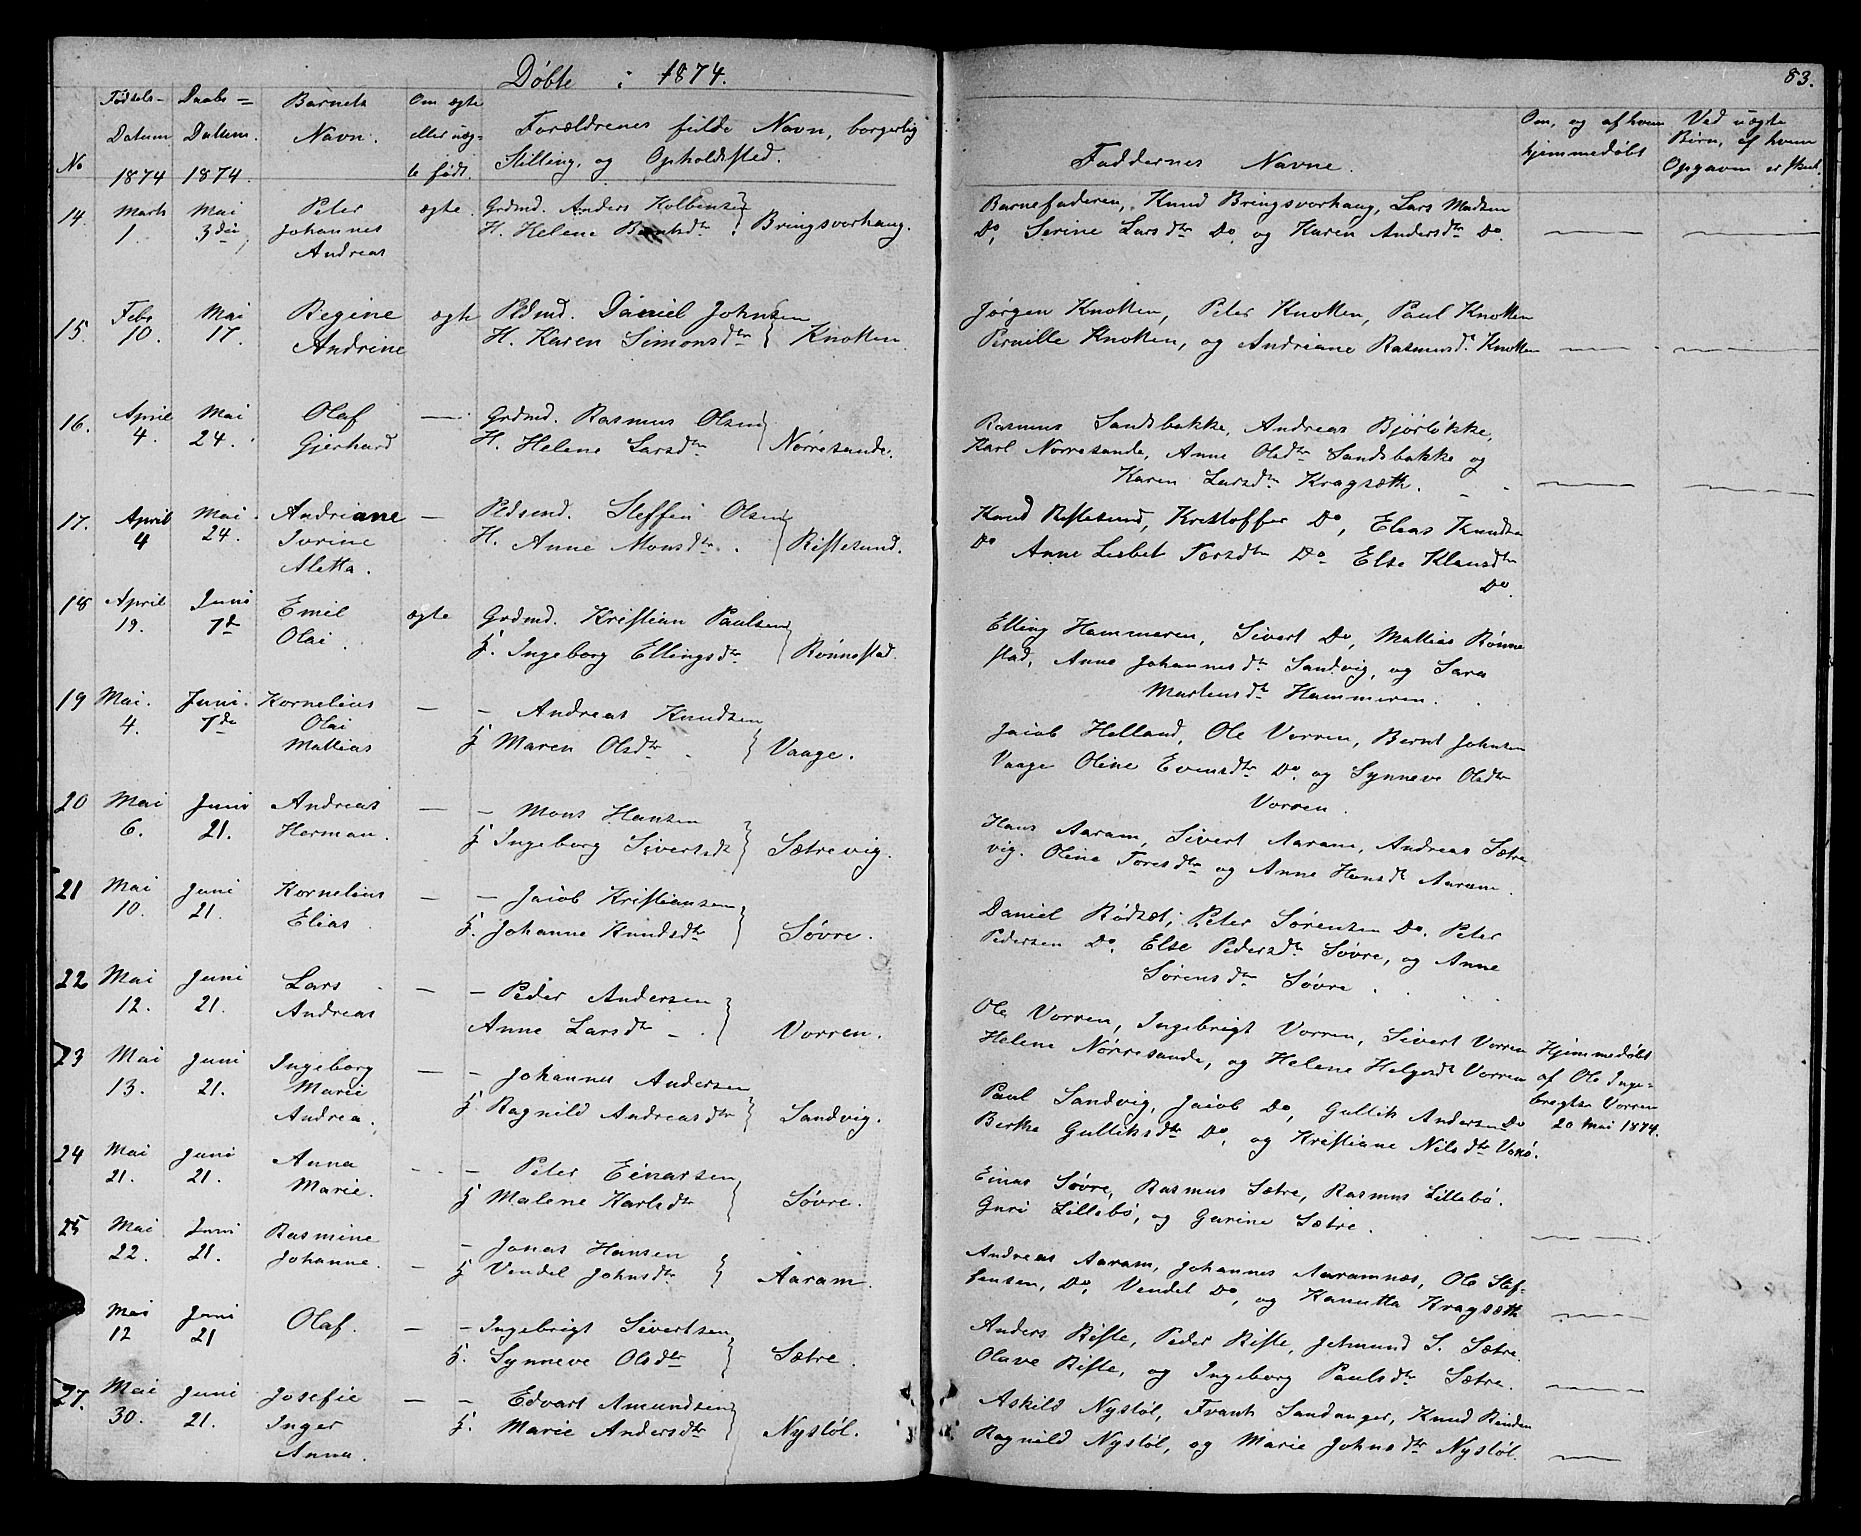 Døbte i 1874.
83.
No
Fødsels-
Datum
1874
Daabs-
Datum.
1874.
Barnets
Navn.
Om ægte
eller uæg-
te født.
Forældrenes fulde Navn, borgerlig
Stilling, og Opholdsted.
Faddernes Navne.
Om, og af hvem
hjemmedøbt
Ved uægte
Børn, af hvem
Opgaven er skeet.
14. Marts 1. Mai 3die Peter Johannes Andreas ægte. Grdmd. Anders Kolbensen
H. Helene Berntsdtr. Bringsvorhaug.
Barnefaderen, Knud Bringsvorhaug, Lars Madsen
Do, Serine Larsdtr Do, og Karen Andersdtr Do.
15. Febr 10. Mai 17. Regine Andrine ægte Pldsmd. Daniel Johnsen
H. Karen Simonsdtr Knotten
Jørgen Knotten, Peter Knotten, Paul Knotten
Pernille Knotten, og Andriane Rasmusd. Knotten
16. April 4. Mai 24. Olaf Gjerhard — Grdmd. Rasmus Olsen
H. Helene Larsdtr Nørresande.
Rasmus Sandsbakke, Andreas Bjørløkke,
Karl Nørresande, Anne Olsdtr Sandsbakke og
Karen Larsdtr Kragseth.
17. April 4 Mai 24. Andriane Iverine Aletta. — Pldsmd. Steffen Olsen
H. Anne Monsdtr. Riflesund.
Knud Riflesund, Kristoffer Do, Elias Knudsen
Do Anne Lisbet Larsdtr Do. Else Klausdtr
Do.
18 April 19. Juni 7de Emil Olai. ægte Grdmd. Kristian Paulsen
H. Ingeborg Ellingsdtr Rønnestad.
Elling Hammeren, Sivert Do, Mattias Rønne
stad, Anne Johannesdtr Sandvig, og Sara
Martinsdtr Hammeren.
19 Mai. 4. Juni. 7de Kornelius Olai Mattias — — Andreas Knudsen
H Maren Olsdtr Vaage.
Jacob Helland, Ole Vorren, Bernt Johnsen
Vaage Oline Evensdtr Do. og Synneve Olsdtr
Vorren.
20 Mai 6. Juni 21. Andreas Herman. — — Mons Hansen
H Ingeborg Sivertsdt Sætrevig.
Hans Aaram, Sivert Aaram, Andreas Sætre
vig. Oline Toresdtr og Anne Hansdt Aaram.
21 Mai 10. Juni 21. Kornelius Elias. — — Jacob Kristiansen
H. Johanne Knudsdtr Søvre.
Daniel Rødsæt, Peter Sørensen Do. Peter
Pedersen Do. Else Pedersdtr Søvre, og Anne
Sørensdtr Søvre.
22 Mai 12. Juni 21. Lars Andreas — — Peder Andersen
Anne Larsdtr Vorren.
Ole Vorren, Ingebrigt Vorren, Sivert Vorren
Helene Nørresande, og Helene Helgesdt Vorren
Hjemmedøbt
af Ole Inge-
brigtsen Vorren
20 Mai 1874.
23 Mai 13. Juni 21. Ingeborg Marie Andrea. — — Johannes Andersen
H Ragnild Andreasdtr Sandvig.
Paul Sandvig, Jacob Do, Gullik Andersen Do
Berthe Gulliksdtr Do, og Kristiane Nilsdtr Voksø.
24 Mai 21. Juni 21. Anna Marie. — — Peter Einarsen
H Malene Karlsdtr Søvre.
Einar Søvre, Rasmus Sætre, Rasmus Lillebø.
Guri Lillebø, og Gurine Sætre.
25 Mai 22. Juni 21. Rasmine Johanne. — — Jonas Hansen
H Vendel Johnsdtr Aaram.
Andreas Aaram, Johannes Aaramnæs, Ole Stef-
fensen, Do, Vendel Do, og Kanutta Kragseth
Mai 12 Juni 21 Olaf. — — Ingebrigt Sivertsen
H. Synneve Olsdtr Sætre.
Anders Rifle, Peder Rifle, Jetmund S. Sætre.
Olave Rifle, og Ingeborg Paulsdtr Sætre.
27. Mai 30. Juni 21. Josefie Inger Anna. — — Edvart Amundsen
H. Marie Andersdtr Nystøl.
Askild Nystøl, Frants Sandanger, Knud Rinden
Ragnild Nystøl, og Marie Johnsdtr Nystøl.